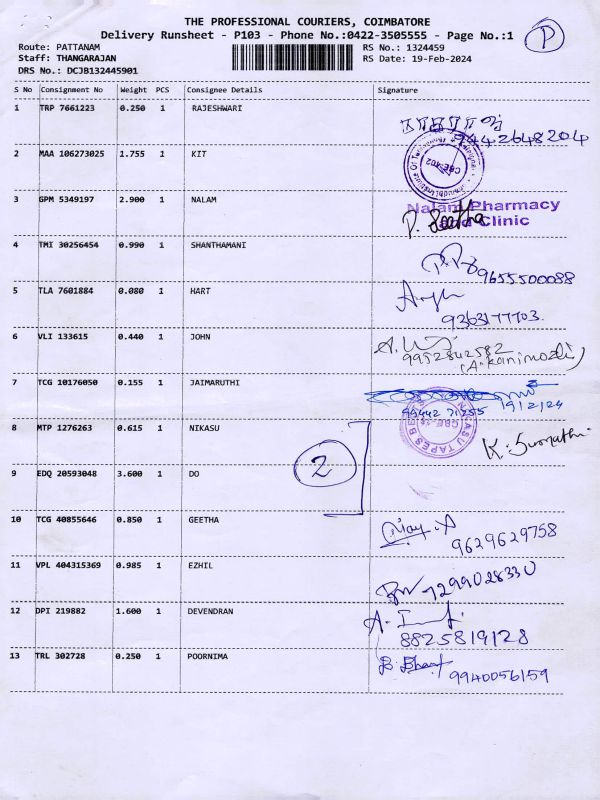 THE PROFESSIONAL COURIERS, COIMBATORE
Delivery Runsheet - P103 - Phone No.:0422-3505555 - Page No.:1
P
Route: PATTANAM
RS No.: 1324459
Staff: THANGARAJAN
RS Date: 19-Feb-2024
DRS No.: DCJB132445901
S No Consignment No Weight PCS Consignee Details Signature
1 TRP 7661223 0.250 1 RAJESHWARI
9442648204
2 MAA 106273025 1.755 1 KIT
CBE-402
3 GPM 5349197 2.900 1 NALAM
Nalam Pharmacy
and Clinic
P. Seetha
4 TMI 30256454 0.990 1 SHANTHAMANI
9655500088
5 TLA 7601884 0.080 1 HART
9363177703.
6 VLI 133615 0.440 1 JOHN
9952842582
(A. Kanimozhi)
7 TCG 10176050 0.155 1 JAIMARUTHI
99442 71255 19/2/24
8 MTP 1276263 0.615 1 NIKASU
K. Sumathi
2
9 EDQ 20593048 3.600 1 DO
10 TCG 40855646 0.850 1 GEETHA
9629629758
11 VPL 404315369 0.985 1 EZHIL
7299028330
12 DPI 219882 1.600 1 DEVENDRAN
8825819128
13 TRL 302728 0.250 1 POORNIMA
9940056159